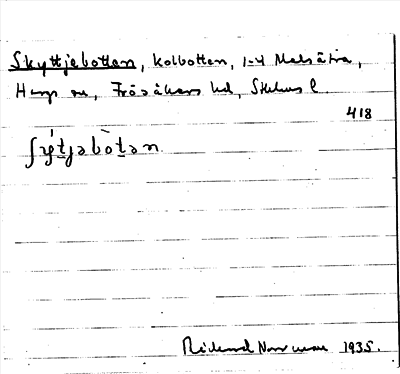 Skyttjebotten, kolbotten, 1-4 Malsätra,
Hargs sn, Frösåkers hd, Sthlms l.
418
ʃýt̠jəbòt̠ən
Rickard Norrman 1935.